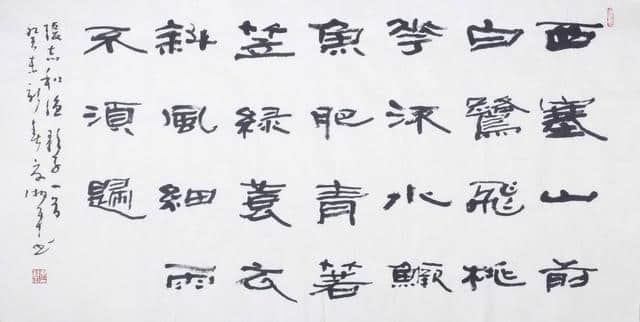 西塞山前
白鷺飛桃
華流水鱖
魚肥青箬
笠綠蓑衣
斜風細雨
不須歸
張志和漁歌子一首
癸未新春